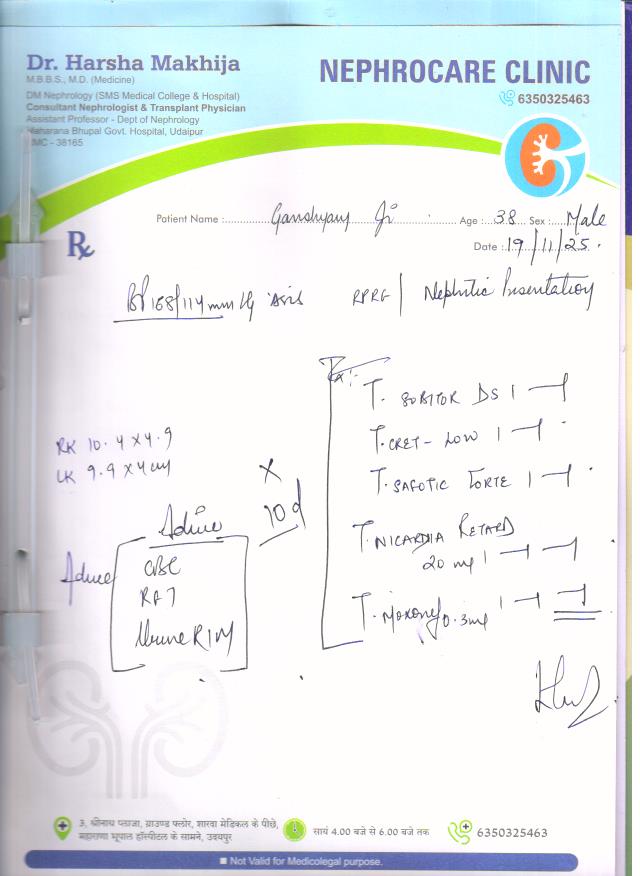 Dr. Harsha Makhija
M.B.B.S., M.D. (Medicine)
DM Nephrology (SMS Medical College & Hospital)
Consultant Nephrologist & Transplant Physician
Assistant Professor - Dept of Nephrology
Maharana Bhupal Govt. Hospital, Udaipur
RMC - 38165
NEPHROCARE CLINIC
6350325463
Patient Name : Ganshyam Ji Age : 38 Sex : Male
Rx
Date : 19/11/25
BP 168/114 mm Hg RPRF / Nephritic Presentation
Rx :-
T. SOBITOR DS 1
T. CRET-LOW 1
T. SAFOTIC FORTE 1
T. NICARDIA RETARD
20 mg 1
T. 0.3mg 1
RK 10.4 x 4.9
LK 9.9 x 4 cm
x
10 d
Advice
Advice
CBC
RFT
Urine R/M
3, श्रीनाथ प्लाजा, ग्राउण्ड फ्लोर, शारदा मेडिकल के पीछे,
महाराणा भूपाल हॉस्पीटल के सामने, उदयपुर
सायं 4.00 बजे से 6.00 बजे तक
6350325463
Not Valid for Medicolegal purpose.